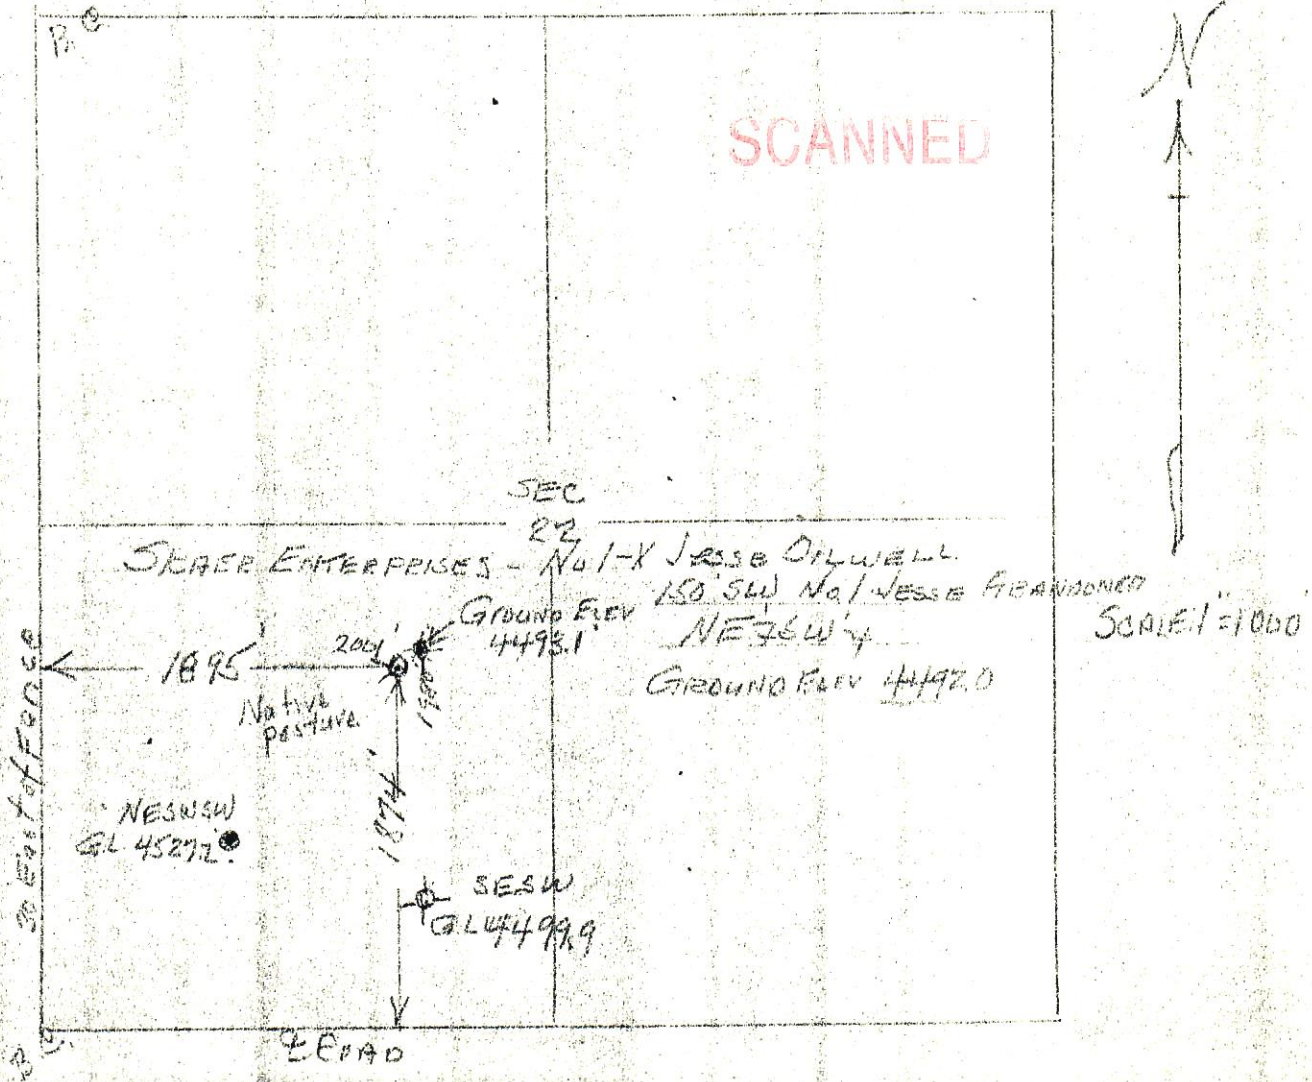 SCANNED
N
SEC
22
SKAER ENTERPRISES - No 1-X JESSE OILWELL
150' SW No 1 JESSE ABANDONED
NE SW
GROUND ELEV 4492.0
GROUND ELEV
4493.1'
SCALE 1"=1000'
1895'
200'
1980
Native
pasture
1874'
30 East of Fence
NESWSW
GL 4527.2'
SESW
GL 4499.9
ROAD